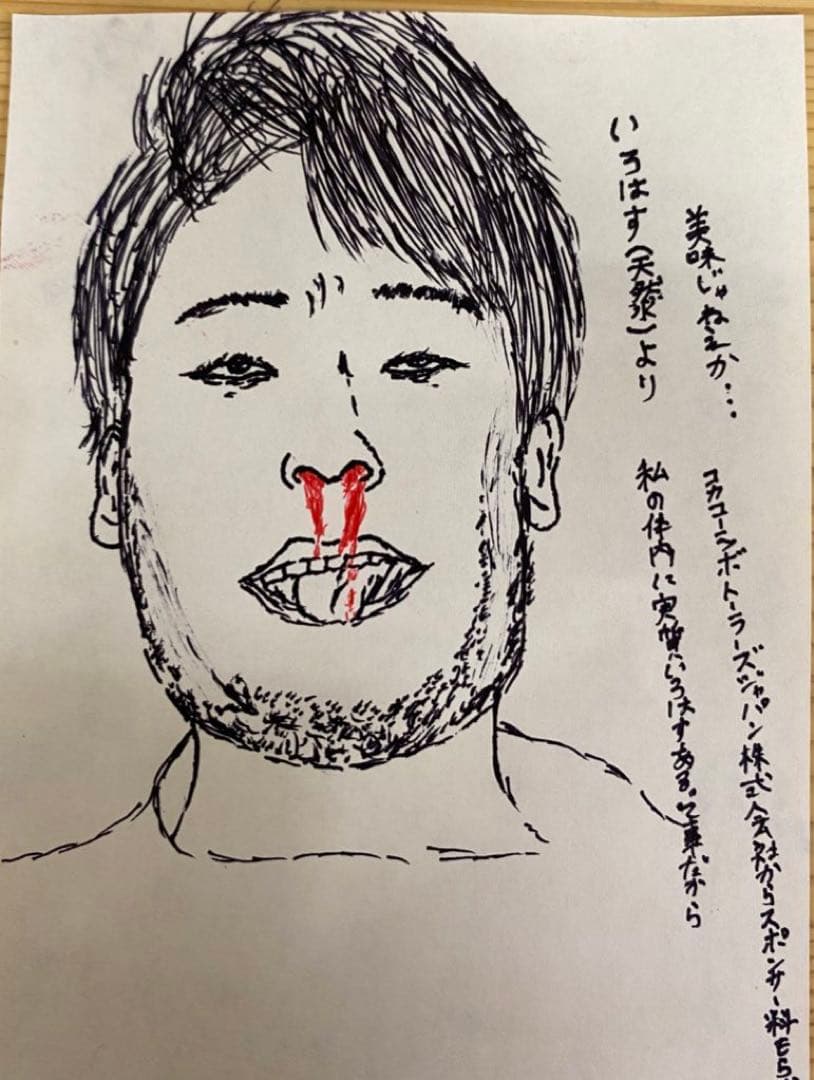 いろはす(天然水)より
美味じゃねえか...
私の体内に実質いろはすあるって事だから
コカコーラボトーラーズジャパン株式会社からスポンサー料もら